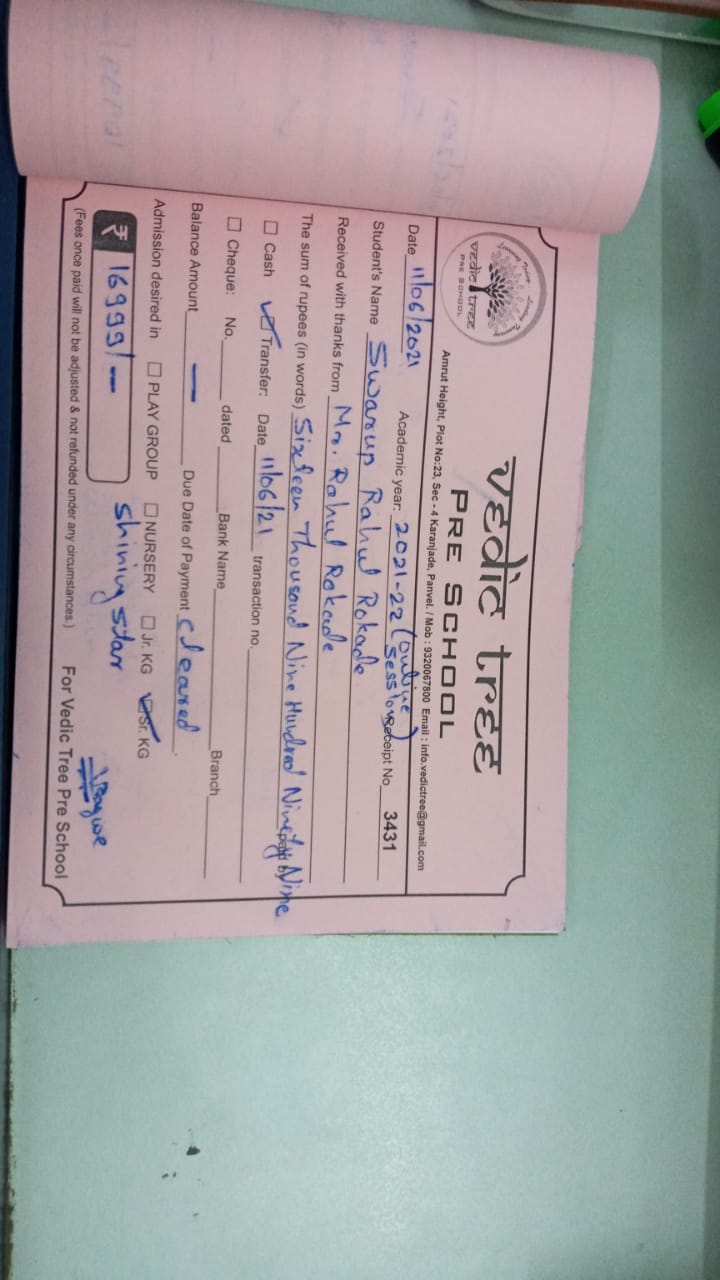 vedic tree
PRE SCHOOL
vedic tree
PRE SCHOOL
Amrut Height, Plot No:23, Sec - 4 Karanjade, Panvel. / Mob : 9320067800 Email : info.vedictree@gmail.com
Date 11/06/2021 Academic year: 2021-22 (online session) Receipt No 3431
Student's Name Swarup Rahul Rokade
Received with thanks from Mr. Rahul Rokade
The sum of rupees (in words) Sixteen Thousand Nine Hundred Ninety Nine paid by
☐ Cash ☑ Transfer: Date 11/06/21 transaction no.
☐ Cheque: No. dated Bank Name Branch
Balance Amount — Due Date of Payment cleared
Admission desired in ☐ PLAY GROUP ☐ NURSERY ☐ Jr. KG ☑ Sr. KG
₹ 16999/— Shining star
(Fees once paid will not be adjusted & not refunded under any circumstances.) For Vedic Tree Pre School